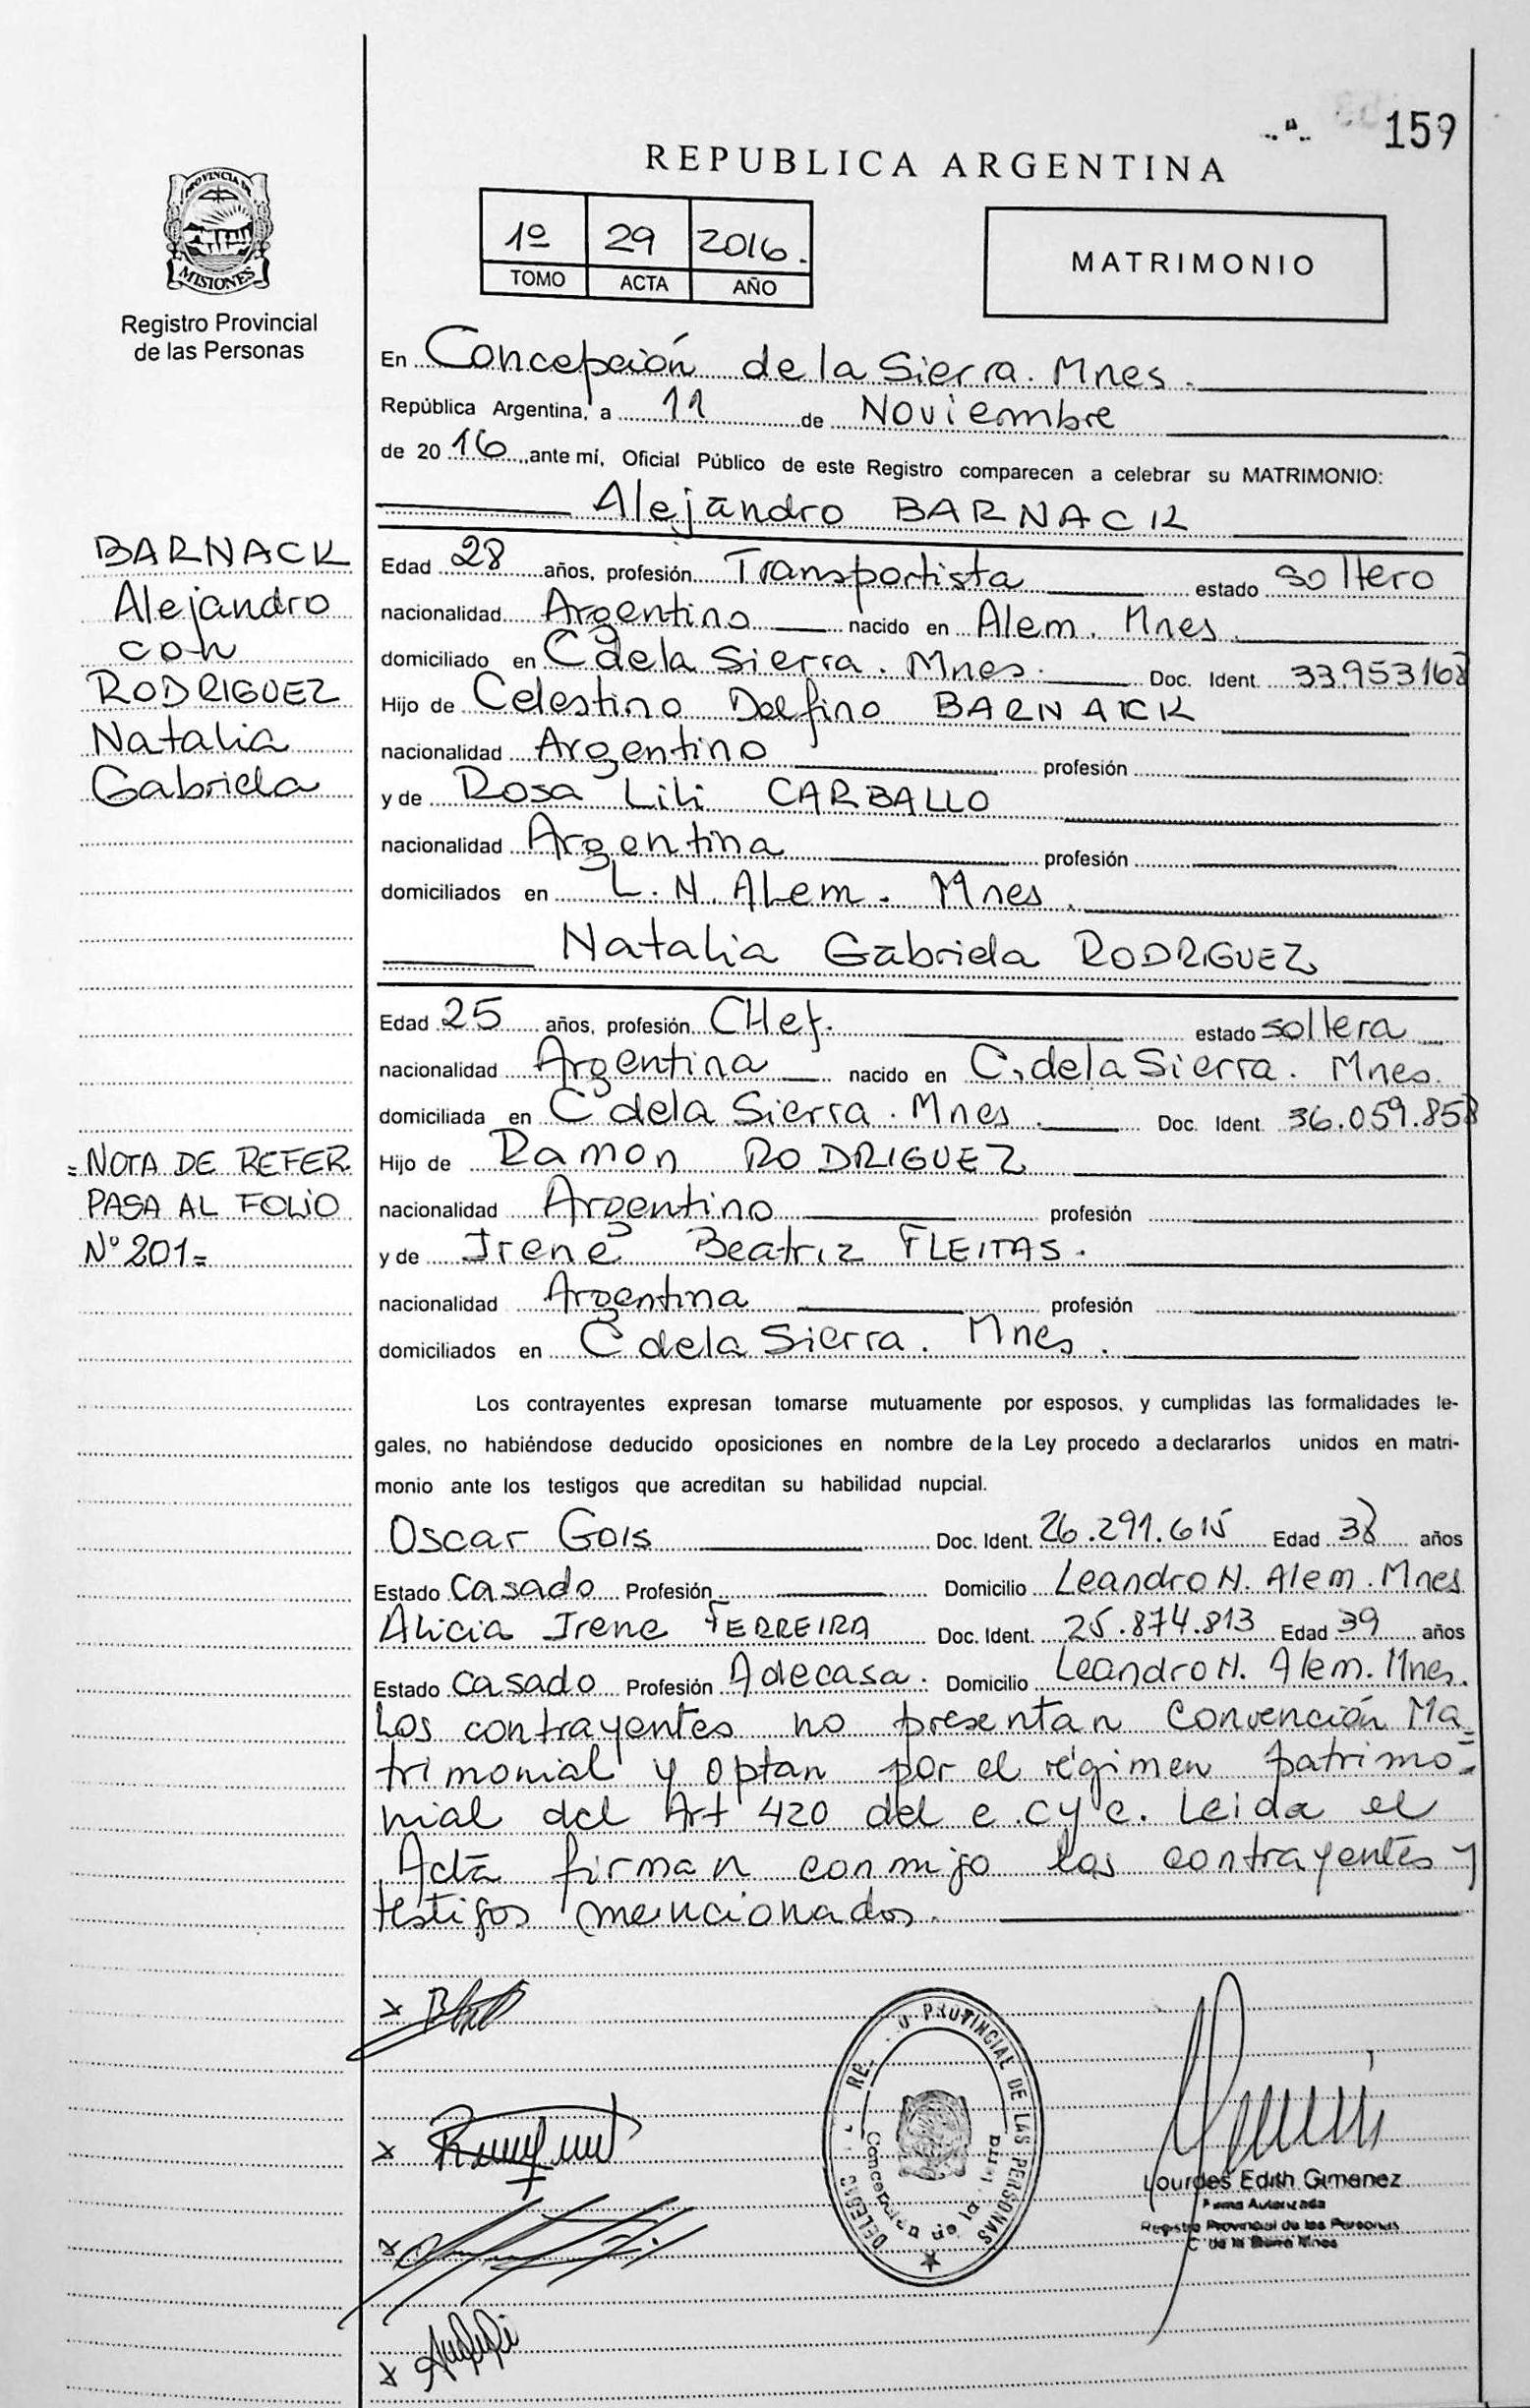 159
REPUBLICA ARGENTINA
PROVINCIA DE
MISIONES
Registro Provincial
de las Personas
1º 29 2016.
TOMO ACTA AÑO
MATRIMONIO
En Concepción de la Sierra. Mnes.
República Argentina, a 11 de Noviembre
de 2016, ante mí, Oficial Público de este Registro comparecen a celebrar su MATRIMONIO:
Alejandro BARNACK
BARNACK
Alejandro
con
RODRIGUEZ
Natalia
Gabriela
Edad 28 años, profesión Transportista estado soltero
nacionalidad Argentino nacido en Alem. Mnes.
domiciliado en C de la Sierra. Mnes. Doc. Ident. 33.953168
Hijo de Celestino Delfino BARNACK
nacionalidad Argentino profesión
y de Rosa Lili CARBALLO
nacionalidad Argentina profesión
domiciliados en L. N. ALem. Mnes.
Natalia Gabriela RODRIGUEZ
Edad 25 años, profesión CHef. estado soltera
nacionalidad Argentina nacido en C. de la Sierra. Mnes.
domiciliada en C de la Sierra. Mnes. Doc. Ident. 36.059.858
= NOTA DE REFER.
PASA AL FOLIO
Nº 201=
Hijo de Ramon RODRIGUEZ
nacionalidad Argentino profesión
y de Irene Beatriz FLEITAS.
nacionalidad Argentina profesión
domiciliados en C de la Sierra. Mnes.
Los contrayentes expresan tomarse mutuamente por esposos, y cumplidas las formalidades le-
gales, no habiéndose deducido oposiciones en nombre de la Ley procedo a declararlos unidos en matri-
monio ante los testigos que acreditan su habilidad nupcial.
Oscar Gois Doc. Ident. 26.291.615 Edad 38 años
Estado Casado Profesión Domicilio Leandro N. Alem. Mnes
Alicia Irene FERREIRA Doc. Ident. 25.874.813 Edad 39 años
Estado Casado Profesión A de casa. Domicilio Leandro N. Alem. Mnes.
Los contrayentes no presentan Convención Ma=
trimonial y optan por el régimen patrimo=
nial del Art 420 del c.cyc. Leida el
Acta firman conmigo los contrayentes y
testigos mencionados.
PROVINCIAL DE LAS PERSONAS
Concepción de la
Lourdes Edith Gimenez
Firma Autorizada
Registro Provincial de las Personas
C. de la Sierra Mnes